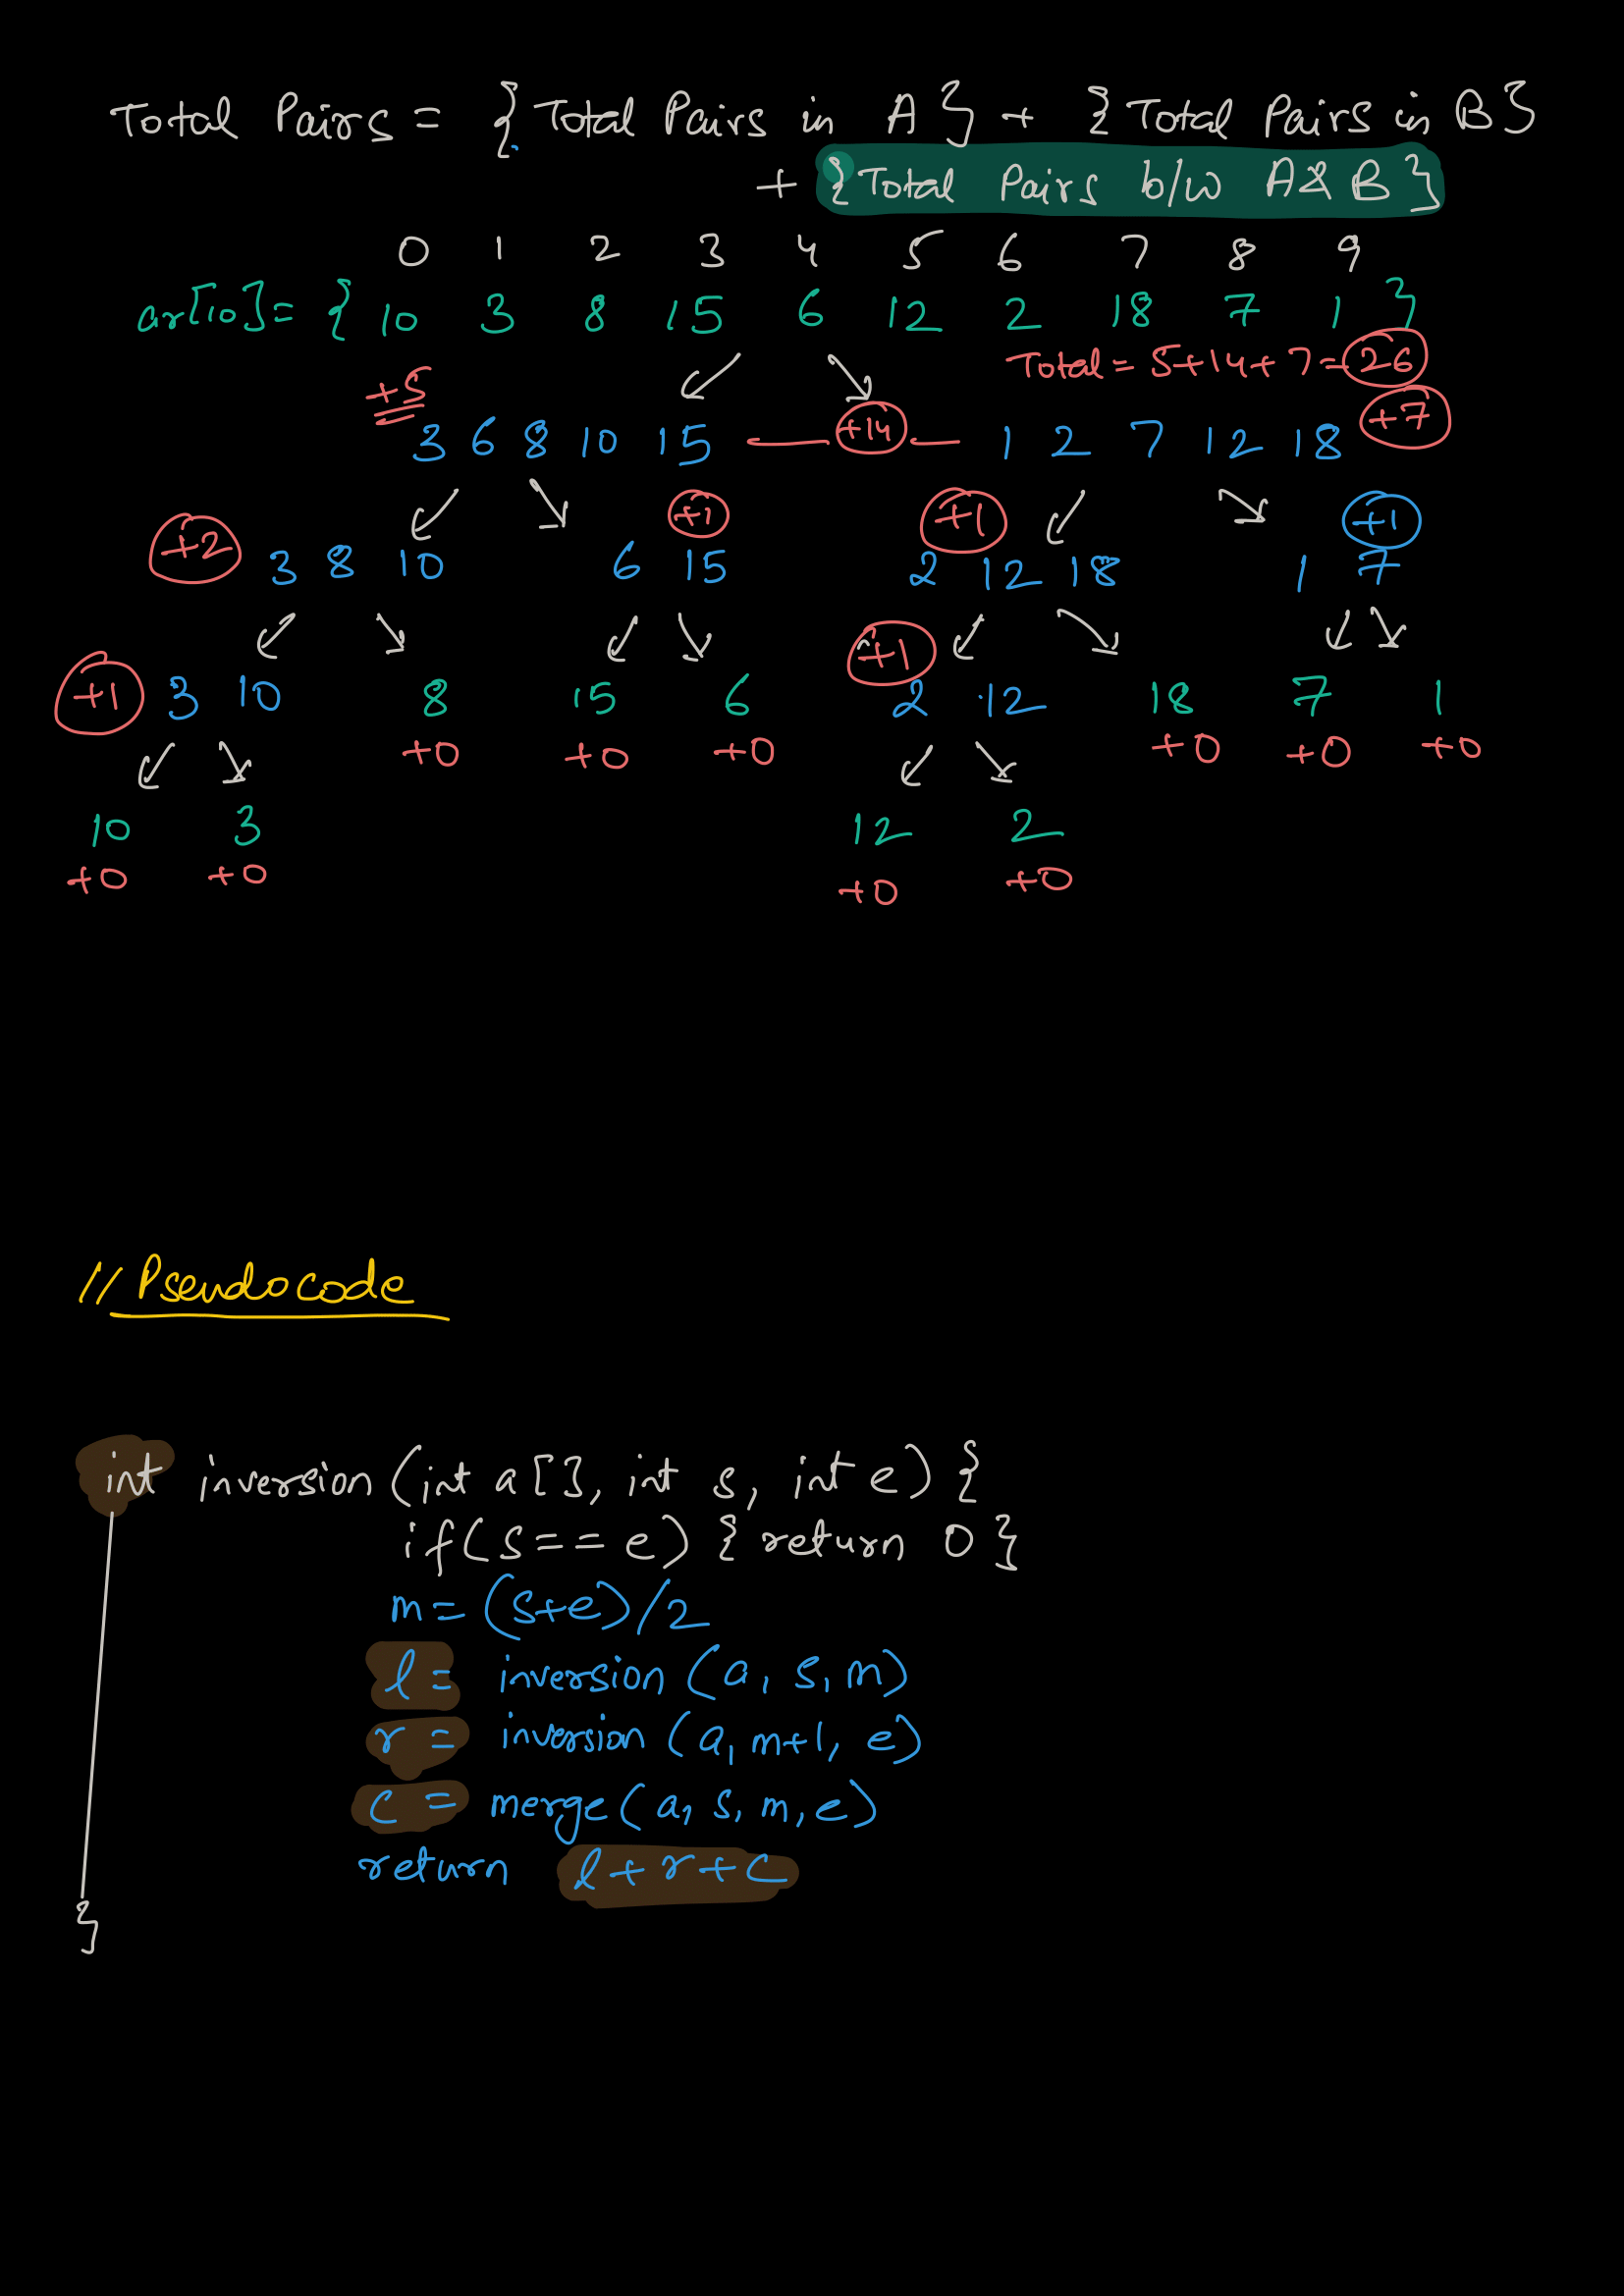 Total Pairs = {Total Pairs in A} + {Total Pairs in B}
+ {Total Pairs b/w A & B}
0 1 2 3 4 5 6 7 8 9
ar[10] = { 10 3 8 15 6 12 2 18 7 1 }
Total = 5+14+7 = 26
+5
3 6 8 10 15 — +14 — 1 2 7 12 18 +7
+2 +1 +1 +1
3 8 10 6 15 2 12 18 1 7
+1
+1 3 10 8 15 6 2 12 18 7 1
+0 +0 +0 +0 +0 +0
10 3 12 2
+0 +0 +0 +0
// Pseudocode
int inversion(int a[], int s, int e) {
if(s == e) { return 0 }
m = (s+e)/2
l = inversion(a, s, m)
r = inversion(a, m+1, e)
c = merge(a, s, m, e)
return l+r+c
}